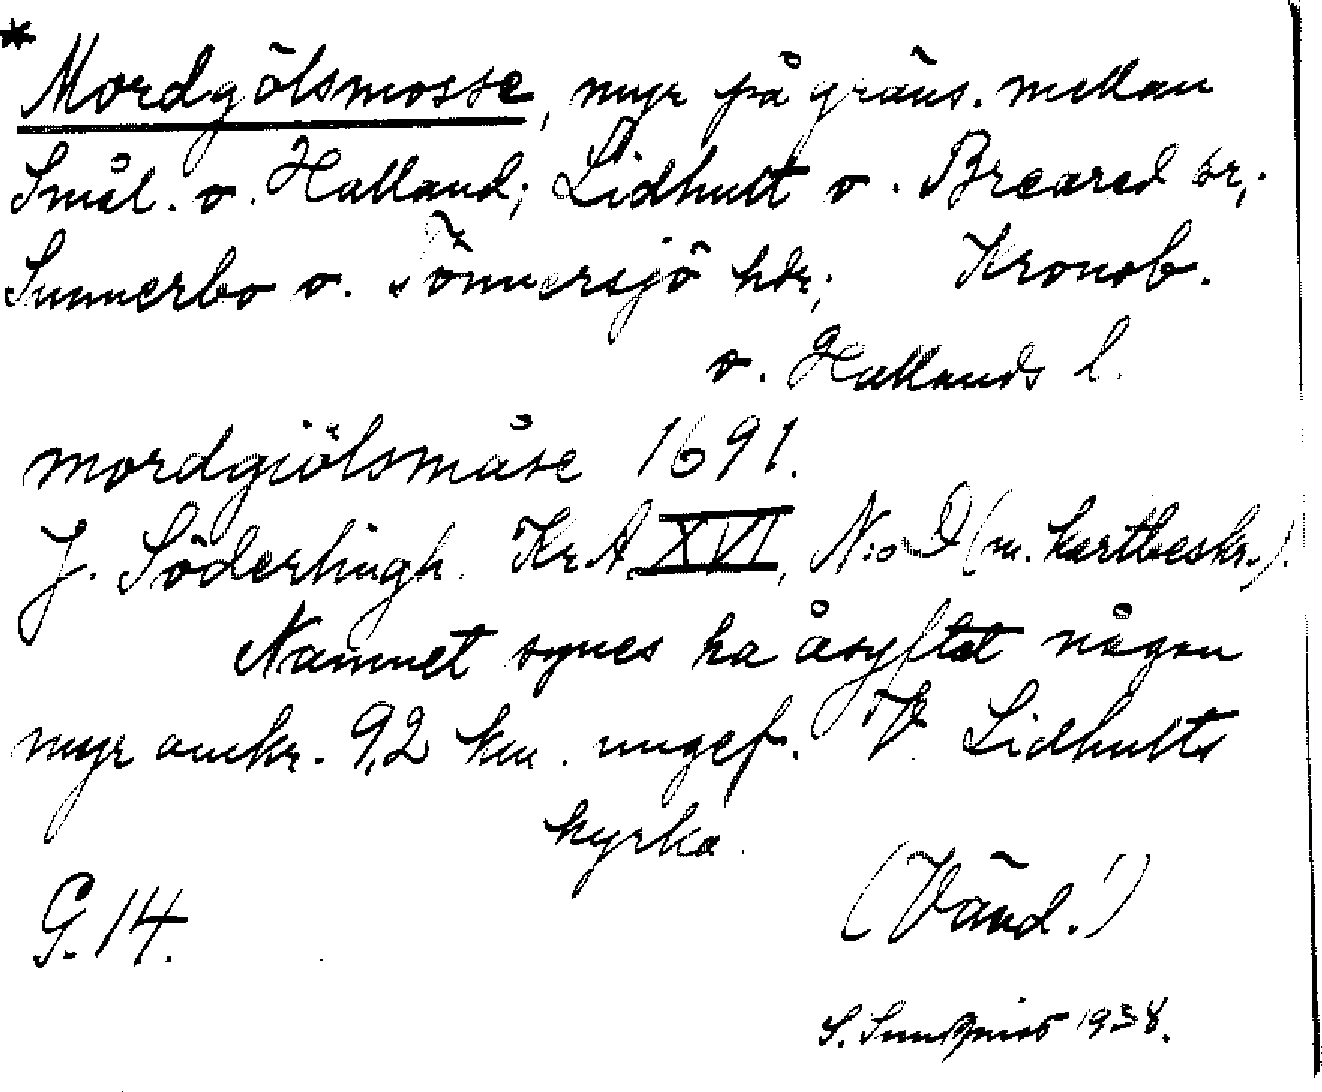 * Mordgölsmosse, myr på gräns. mellan
Smål. o. Halland; Lidhult o. Breared sr;
Sunnerbo o. Tönnersjö hdr; Kronob.
o. Hallands l.
mordgiölsmåse 1691.
J. Söderlingh. KrA XVI, N:o (m. kartbeskr.).
Namnet synes ha åsyftat någon
myr omkr. 9,2 km. ungef. V. Lidhults
kyrka.
(Vänd!)
G. 14.
S. Sundqvist 1938.